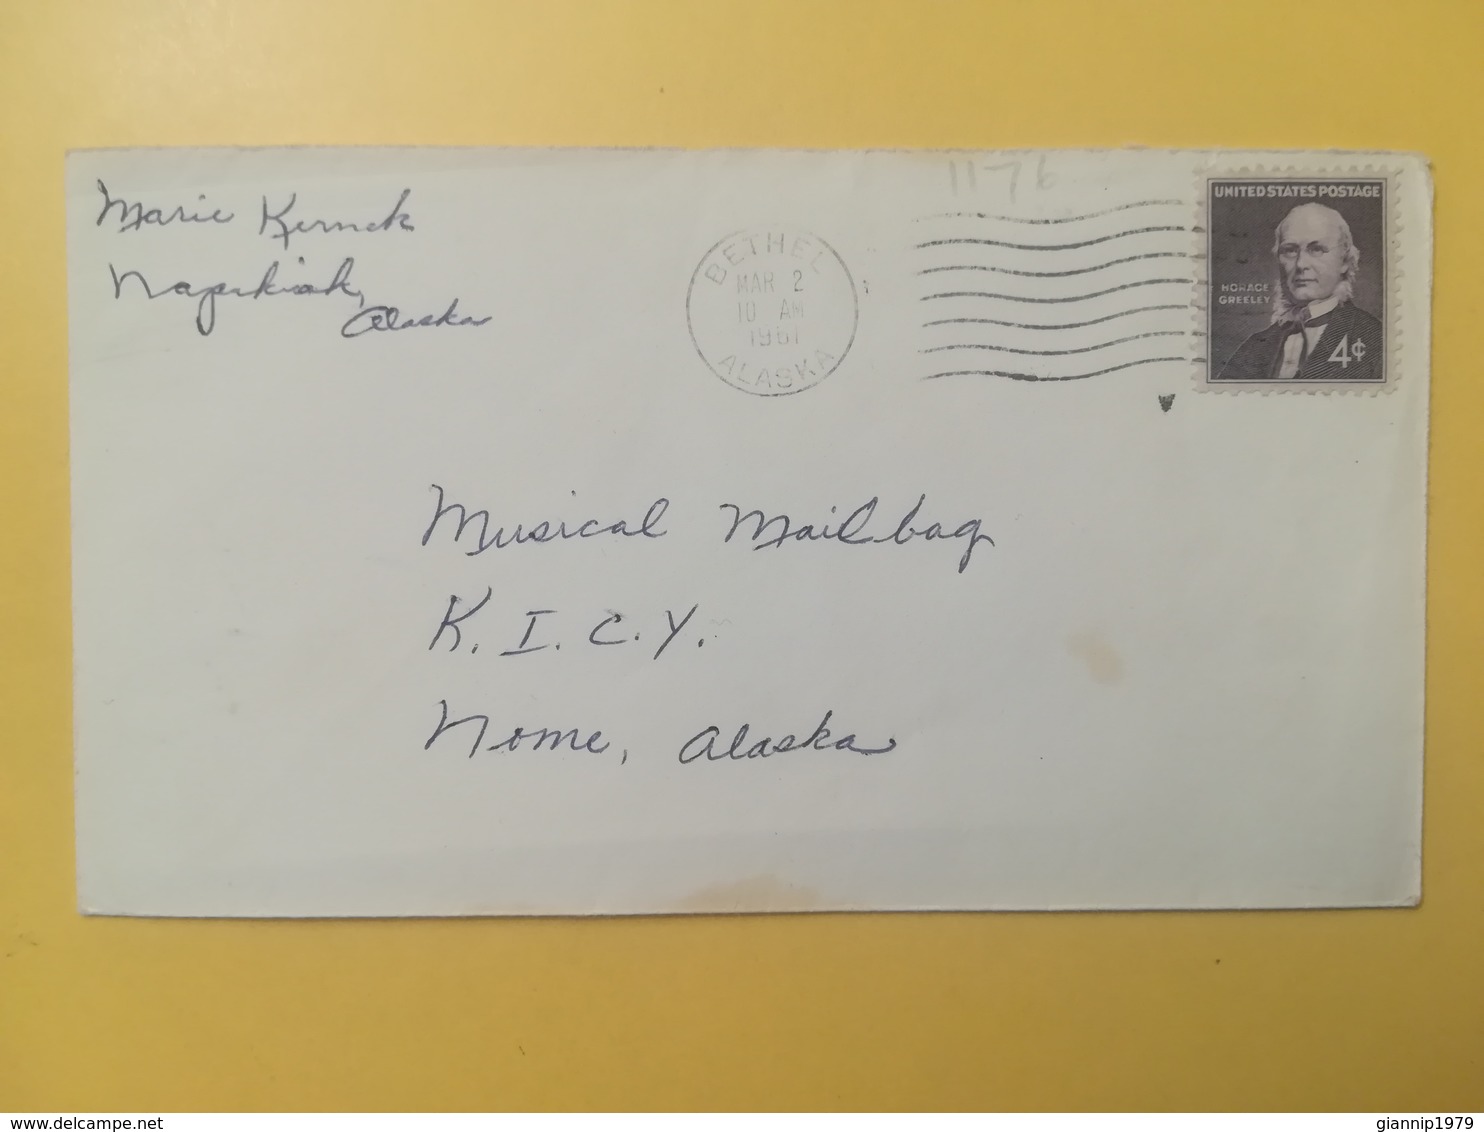 Marie Kernak
Napakiak,
Alaska
1176
BETHEL
MAR 2
10 AM
1961
ALASKA
UNITED STATES POSTAGE
HORACE
GREELEY
4¢
Musical Mailbag
K. I. C. Y.
Nome, Alaska
delcampe.net
giannip1979